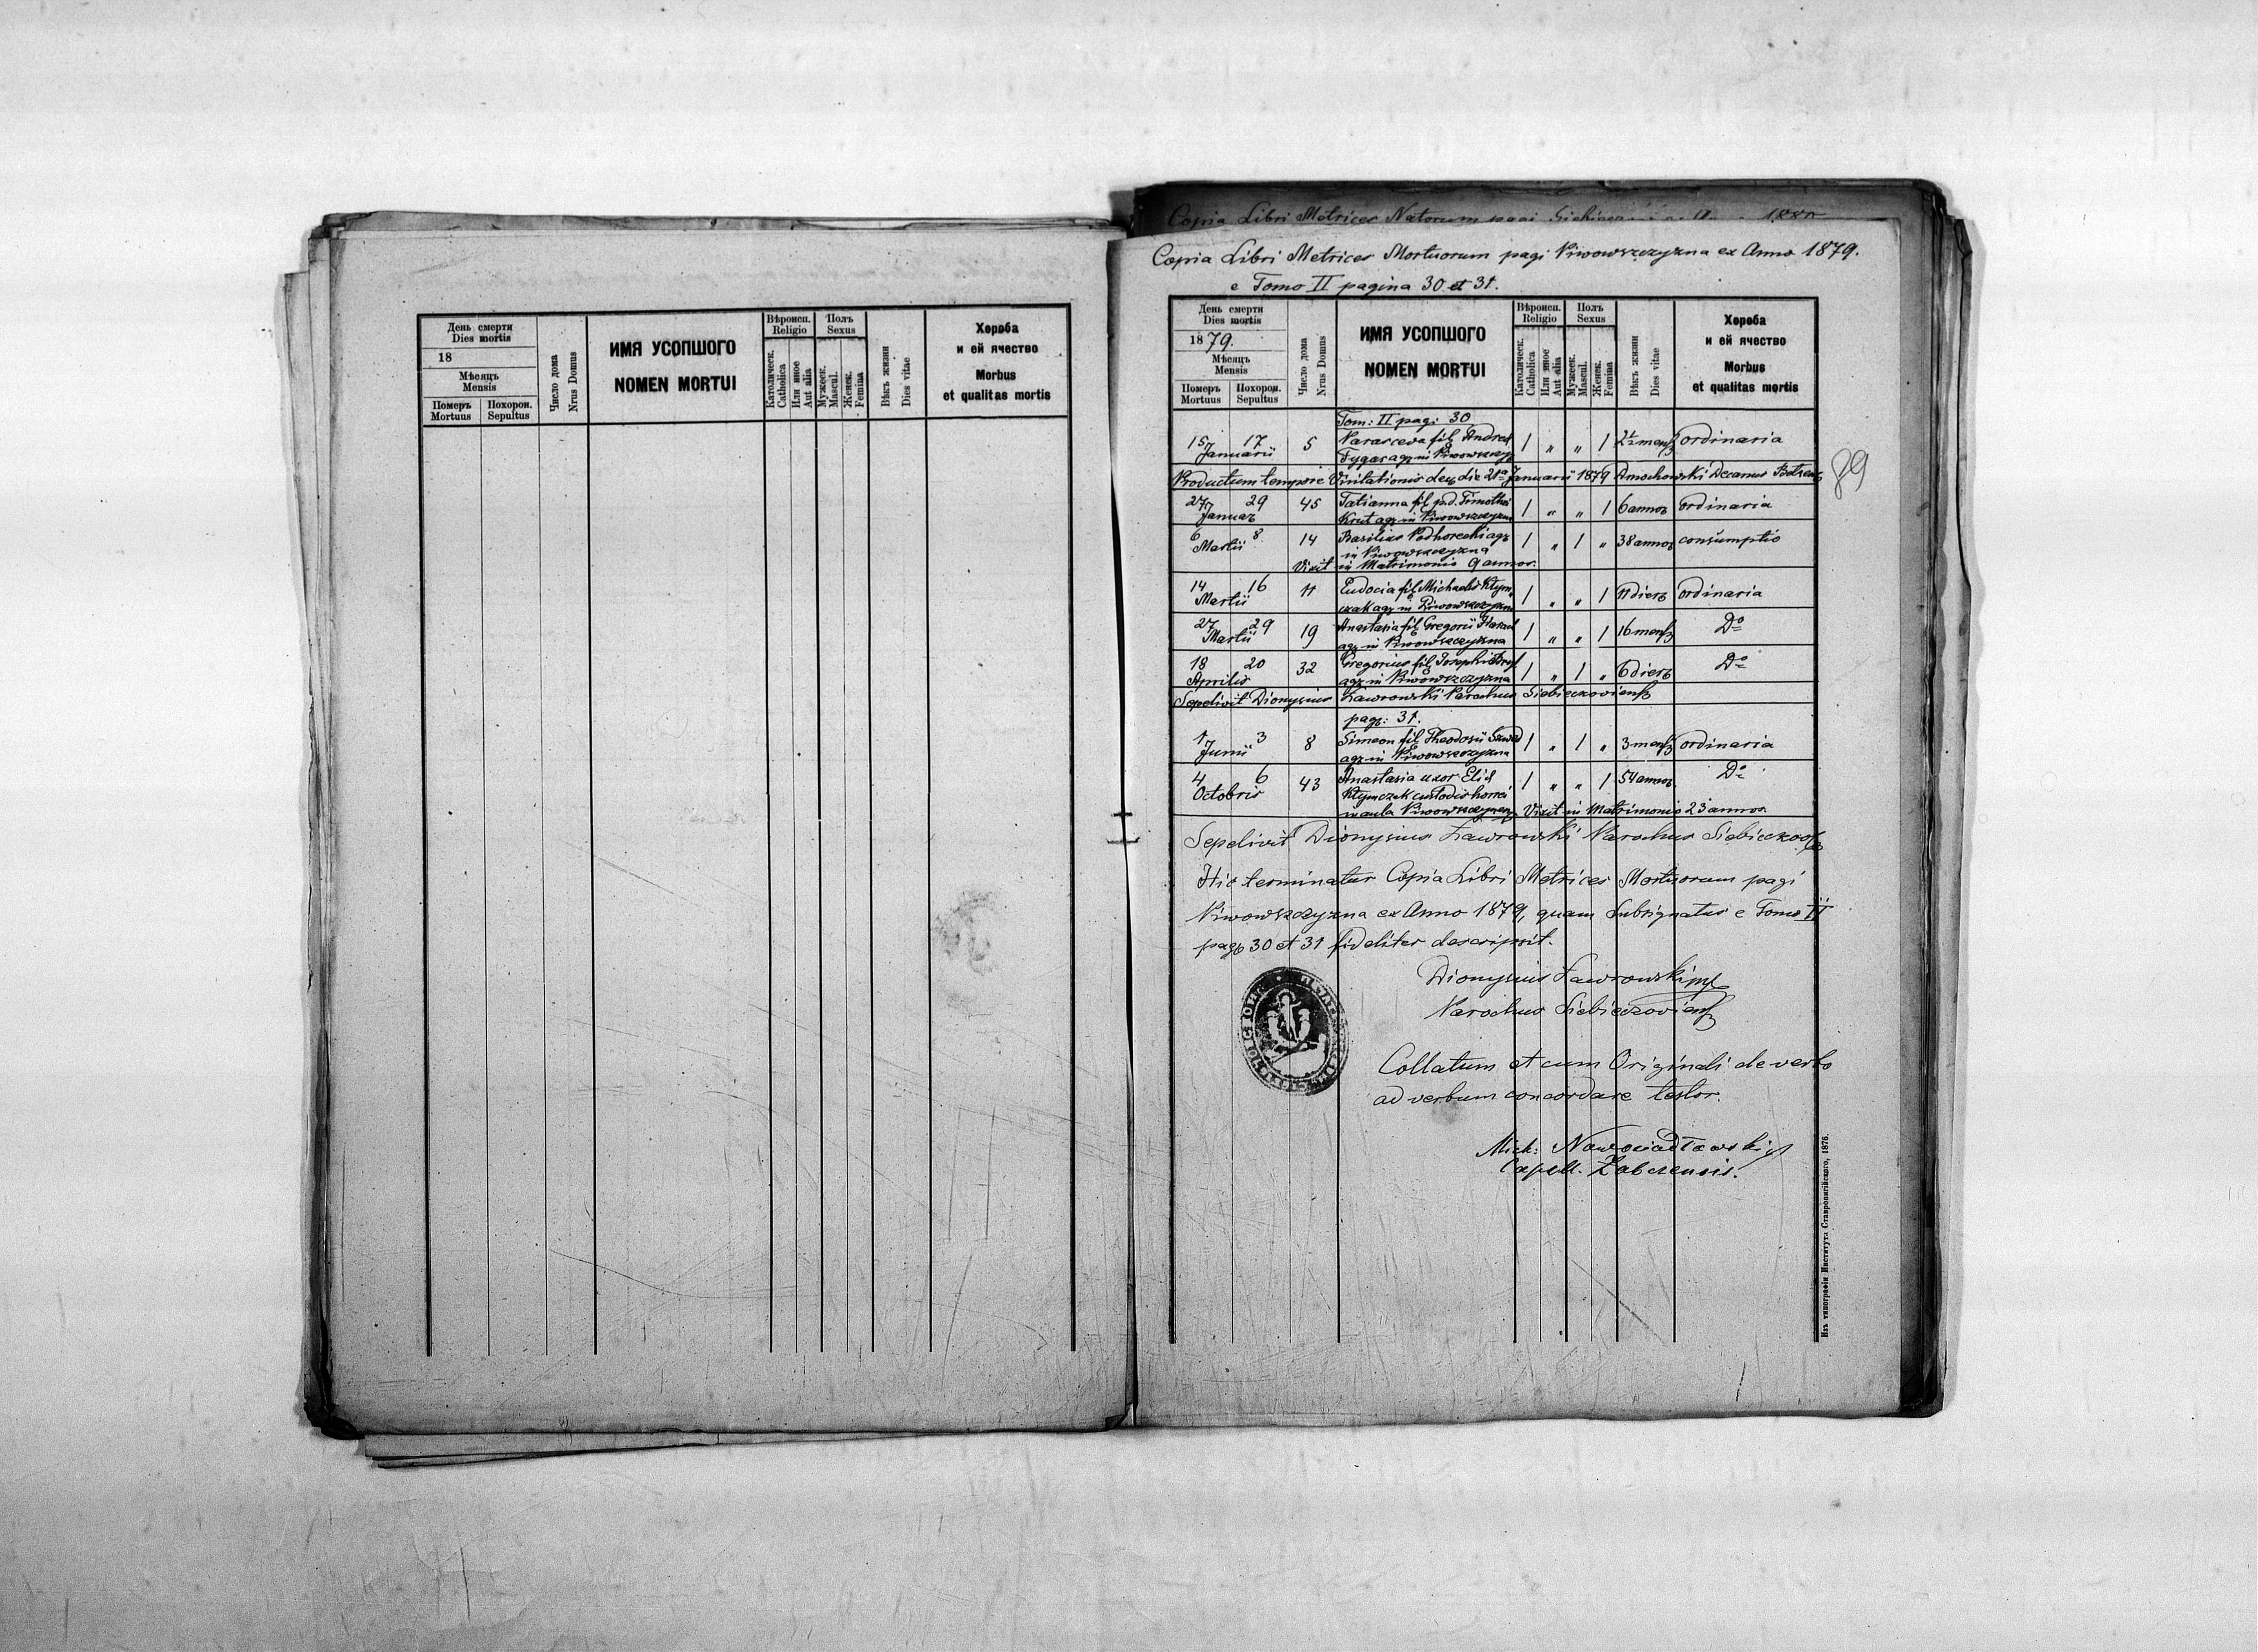 День смерти
Dies mortis
18
Мѣсяцъ
Mensis
Померъ
Mortuus
Похорон.
Sepultus
Число дома
Nrus Domus
ИМЯ УСОПШОГО
NOMEN MORTUI
Вѣроисп.
Religio
Католическ.
Catholica
Или иное
Aut alia
Полъ
Sexus
Мужеск.
Mascul.
Женск.
Femina
Вѣкъ жизни
Dies vitae
Хороба
и ей ячество
Morbus
et qualitas mortis
Copia Libri Metrices Natorum pagi
Copia Libri Metrices Mortuorum pagi Piwowszczyzna ex Anno 1879.
e Tomo II pagina 30 et 31.
День смерти
Dies mortis
1879.
Мѣсяцъ
Mensis
Померъ
Mortuus
Похорон.
Sepultus
Число дома
Nrus Domus
ИМЯ УСОПШОГО
NOMEN MORTUI
Вѣроисп.
Religio
Католическ.
Catholica
Или иное
Aut alia
Полъ
Sexus
Мужеск.
Mascul.
Женск.
Femina
Вѣкъ жизни
Dies vitae
Хороба
и ей ячество
Morbus
et qualitas mortis
Tom: II pag: 30
15 17 5 Parasceva fil Andreä 1 „ „ 1 2½ mens ordinaria
Januarii agr in Piwowszczyz
Productum tempore Visitationis die 21a Januarii 1879 Decanus
89
27 29 45 Tatianna fil p.d. Timothei 1 „ „ 1 6 annor ordinaria
Januar Krut agr in Piwowszczyzna
6 8 14 Basilius Podhorecki agr 1 „ 1 „ 38 annor consumptio
Martii in Piwowszczyzna
Vixit in Matrimonio 9 annos.
14 16 11 Eudocia fil Michaelis Klym 1 „ „ 1 11 dier ordinaria
Martii czak agr in Piwowszczyzna
27 29 19 Anastasia fil Gregorii 1 „ „ 1 16 mens Do
Martii agr in Piwowszczyzna
18 20 32 Gregorius fil Josephi 1 „ 1 „ 6 dier Do
Aprilis agr in Piwowszczyzna
Sepelivit Dionysius Ławrowski Parochus Siebieczoviens
pag: 31.
1 3 8 Simeon fil Theodosii 1 „ 1 „ 3 mens ordinaria
Junii agr in Piwowszczyzna
4 6 43 Anastasia uxor Eliä 1 „ „ 1 54 annor Do
Octobris Klymczak custodis horrei
in aula Piwowszczyzna Vixit in Matrimonio 23 annos.
Sepelivit Dionysius Ławrowski Parochus
Hic terminatur Copia Libri Metrices Mortuorum pagi
Piwowszczyzna ex Anno 1879, quam Subsignatus e Tomo II
pag 30 et 31 fideliter descripsit.
Dionysius Ławrowski
Parochus Siebieczoviens
Collatum et cum Originali de verbo
ad verbum concordare testor.
Mich: Nowosiadłowski
Capell. Żabczensis.
Изъ типографіи Института Ставропигійского, 1876.